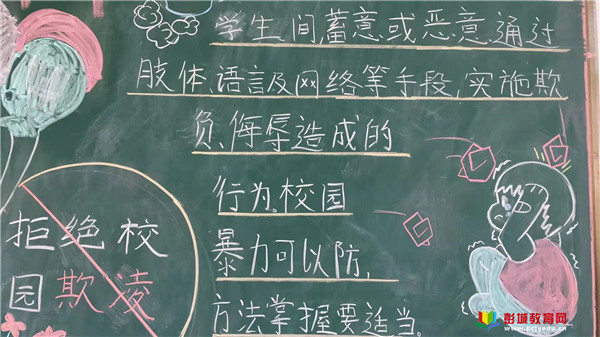 学生间,蓄意或恶意、通过
肢体、语言及网络等手段,实施欺
负、侮辱造成的
行为。校园
暴力可以防,
方法掌握要适当。
拒绝校
园欺凌
彭城教育网
www.pcjyedu.cn